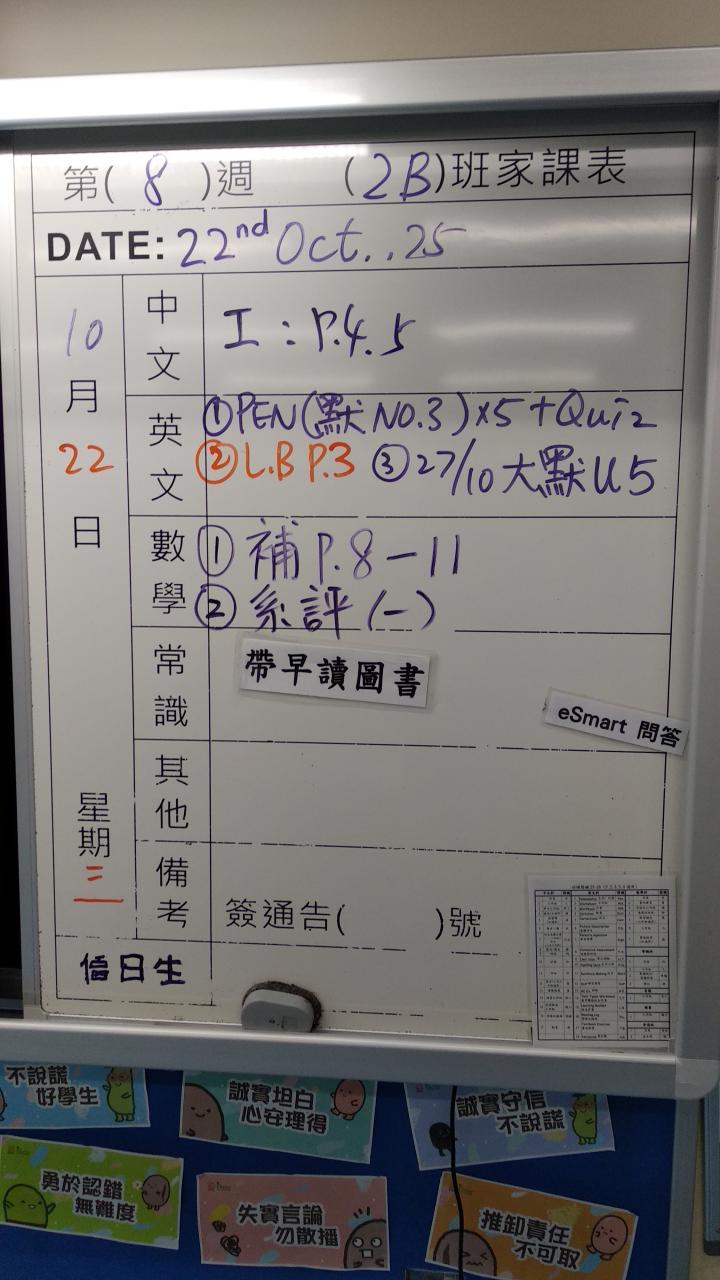 第( 8 )週 (2B)班家課表
DATE: 22nd Oct..25
10月22日 星期三
中文 工:P.4.5
英文 ①PEN(默NO.3)x5+Quiz
②L.B P.3 ③27/10大默U5
數學 ①補P.8-11
②系評(一)
常識 帶早讀圖書
eSmart 問答
其他
備考 簽通告( )號
值日生
不說謊
好學生
誠實坦白
心安理得
誠實守信
不說謊
勇於認錯
無難度
失實言論
勿散播
推卸責任
不可取